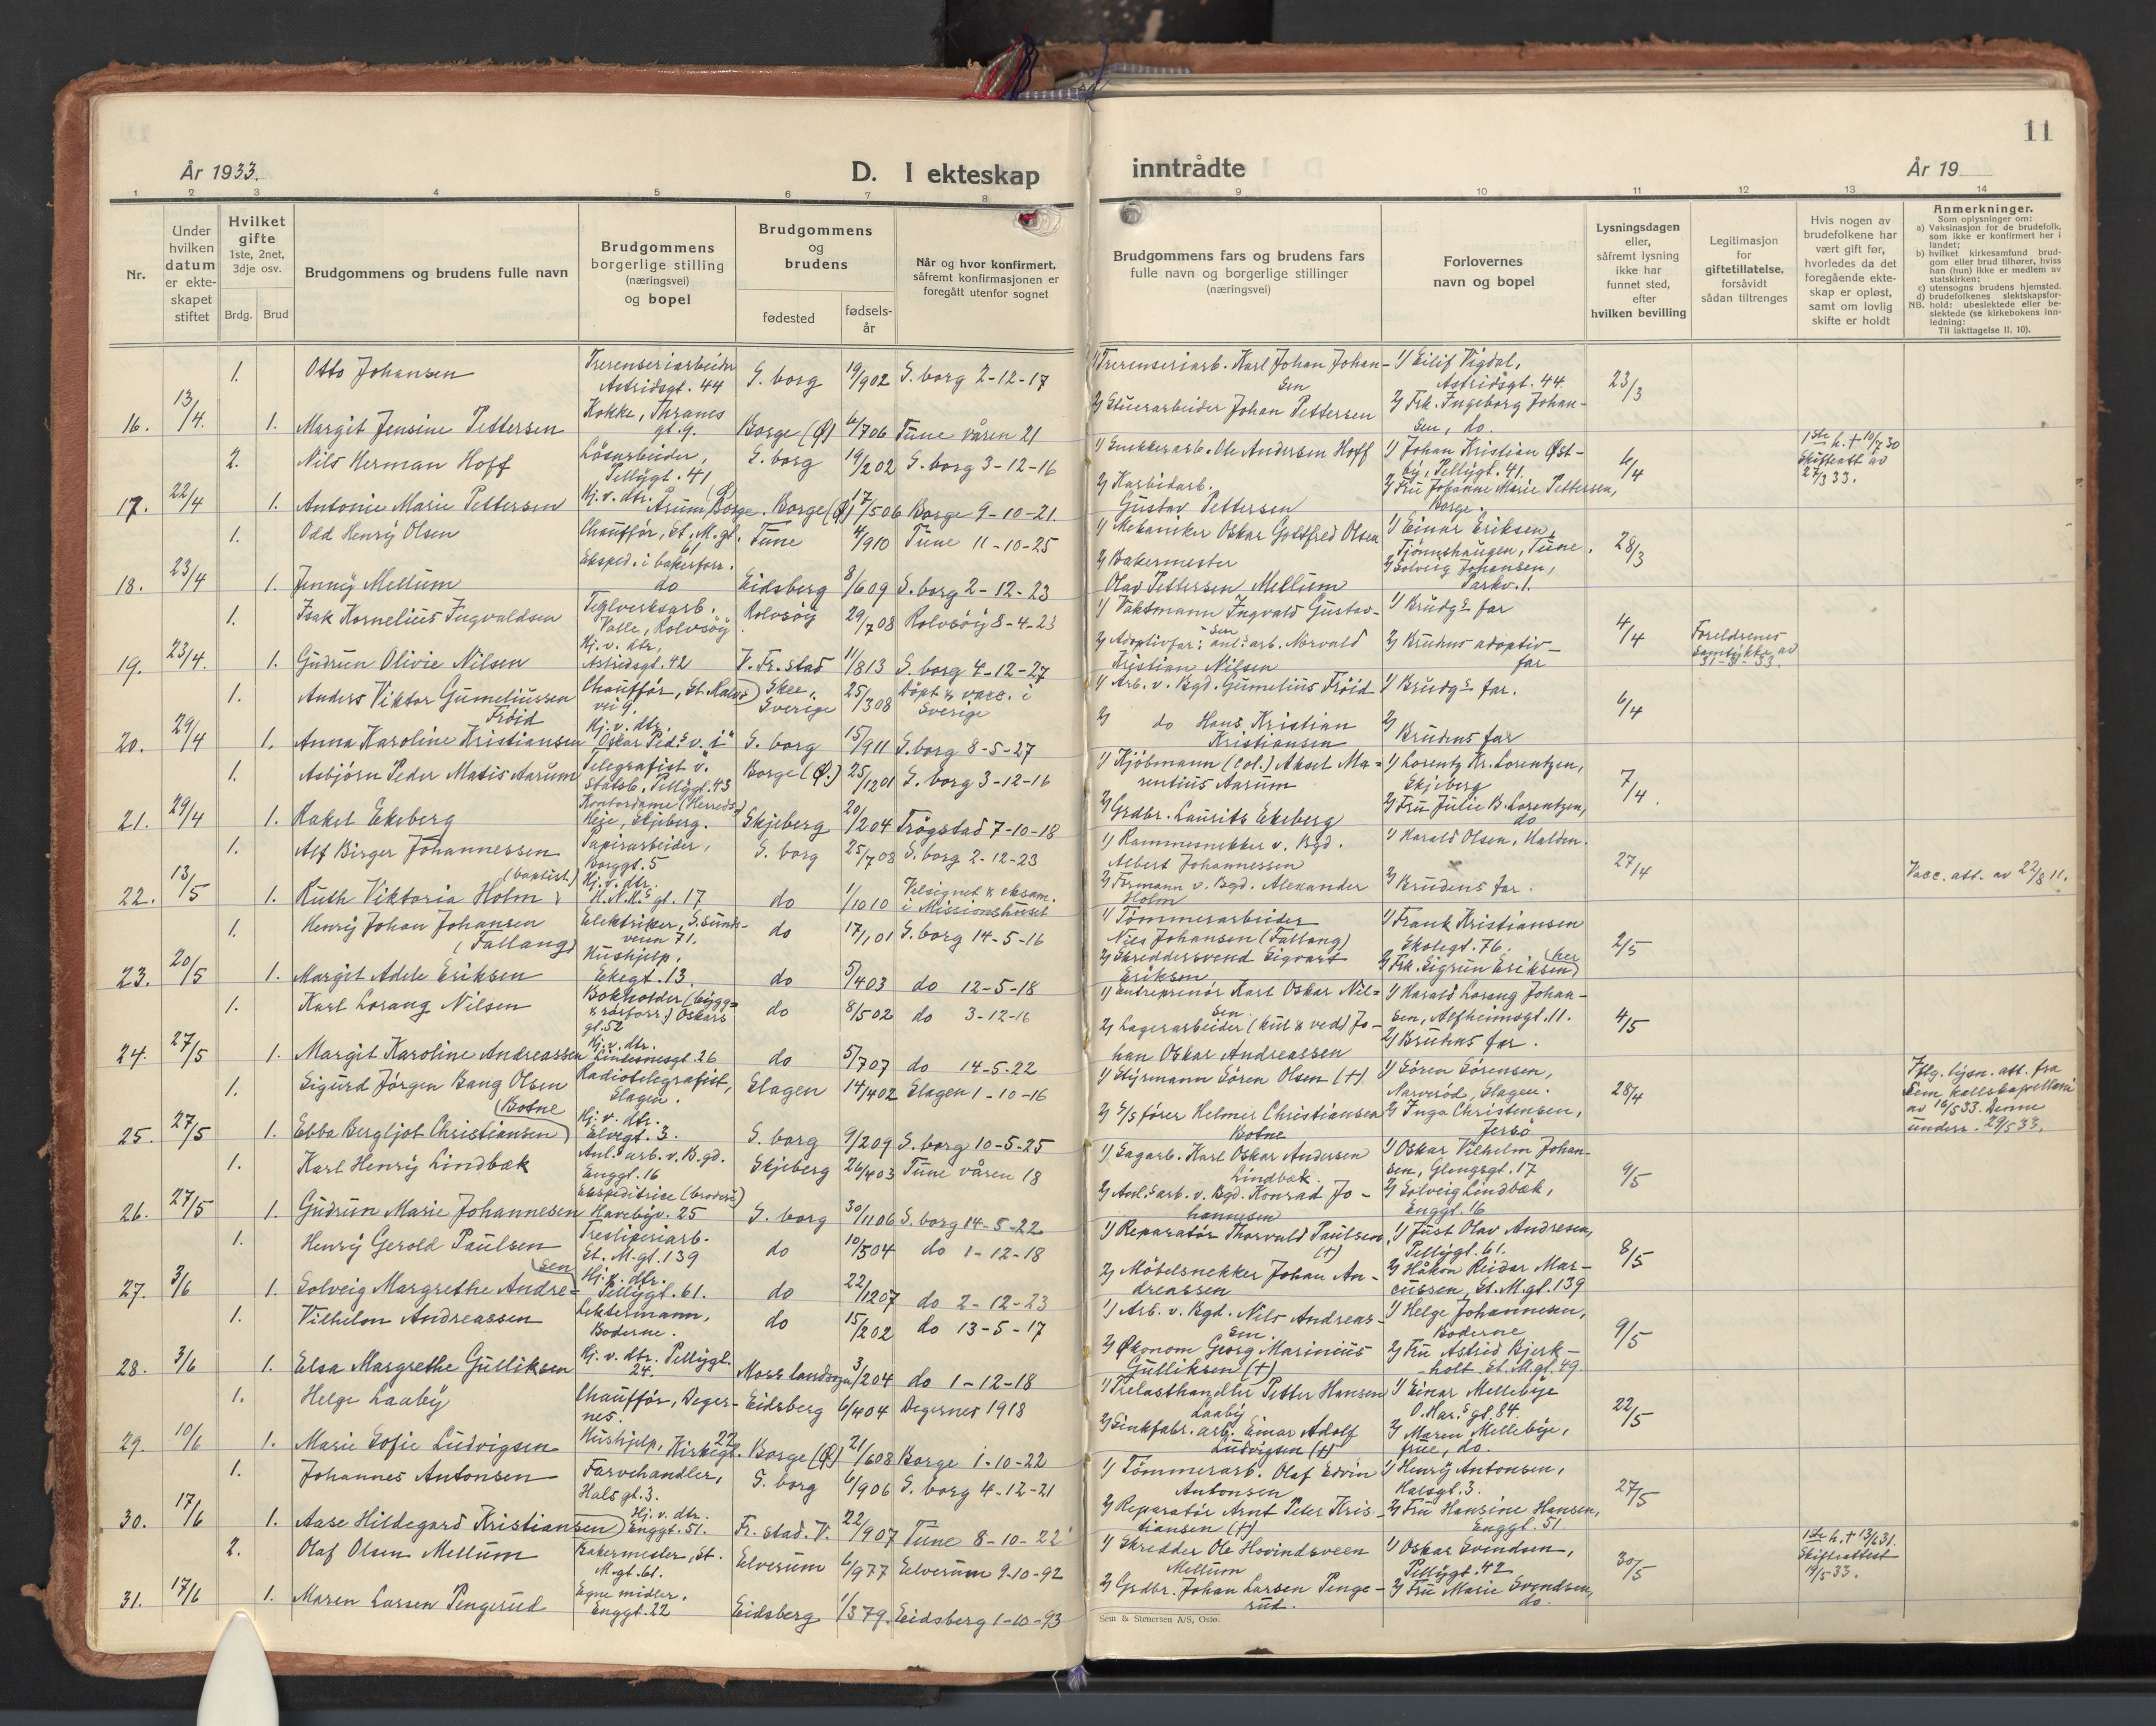 11
År 1933.
D. I ekteskap
inntrådte
År 19
1 2 3 4 5 6 7 8 9 10 11 12 13 14
Nr.
Under hvilken datum er ekte-skapet stiftet
Hvilket gifte
1ste, 2net, 3dje osv.
Brdg. Brud
Brudgommens og brudens fulle navn
Brudgommens borgerlige stilling (næringsvei) og bopel
Brudgommens og brudens
fødested
fødsels-år
Når og hvor konfirmert, såfremt konfirmasjonen er foregått utenfor sognet
Brudgommens fars og brudens fars fulle navn og borgerlige stillinger (næringsvei)
Forlovernes navn og bopel
Lysningsdagen eller, såfremt lysning ikke har funnet sted, efter hvilken bevilling
Legitimasjon for giftetillatelse, forsåvidt sådan tiltrenges
Hvis nogen av brudefolkene har vært gift før, hvorledes da det foregående ekte-skap er opløst, samt om lovlig skifte er holdt
Anmerkninger.
Som oplysninger om:
a) Vaksinasjon for de brudefolk, som ikke er konfirmert her i landet;
b) hvilket kirkesamfund brud-gom eller brud tilhører, hviss han (hun) ikke er medlem av statskirken;
c) utensogns brudens hjemsted.
d) brudefolkenes slektskapsfor-hold: ubeslektede eller be-slektede (se kirkebokens inn-ledning:
NB. Til iakttagelse II. 10).
1. Otto Johansen Trerenseriarbeider Astridsgt. 44 S. borg 19/902 S. borg 2-12-17 1) Trerenseriarb. Karl Johan Johan-sen 1) Eilif Vigdal, Astridsgt. 44. 23/3
16. 13/4. 1. Margit Jensine Pettersen Kokke, Thranes gt. 9. Borge (Ø) 6/706 Tune våren 21 2) Stuerarbeider Johan Pettersen 2) Frk. Ingeborg Johan-sen, do.
2. Nils Herman Hoff Løsarbeider, Pellygt. 41 S. borg 19/202 S. borg 3-12-16 1) Snekkerarb. Ole Andersen Hoff 1) Johan Kristian Øst-by, Pellygt. 41. 6/4 1ste h. + 10/7 30 Skifteatt av 27/3 33.
17. 22/4 1. Antonie Marie Pettersen Hj. v. dtr. Årum, Borge. Borge (Ø) 17/506 Borge 9-10-21. 2) Karbidarb. Gustav Pettersen 2) Fru Johanne Marie Pettersen, Borge.
1. Odd Henry Olsen Chauffør, St. M. gt. 61 Tune 4/910 Tune 11-10-25 1) Mekaniker Oskar Gottfred Olsen 1) Einar Eriksen, Tjønnshaugen, Tune. 28/3
18. 23/4 1. Jenny Mellum Eksped. i bakerforr. do Eidsberg 8/609 S. borg 2-12-23 2) Bakermester Olav Pettersen Mellum 2) Solveig Johansen, Parkv. 1.
1. Isak Kornelius Ingvaldsen Teglverksarb. Valle, Rolvsøy Rolvsøy 29/708 Rolvsøy 8-4-23 1) Vaktmann Ingvald Gustav-sen 1) Brudgs far 4/4 Foreldrenes samtykke av 31-3-33.
19. 23/4. 1. Gudrun Olivie Nilsen Hj. v. dtr, Astridsgt. 42 V. Fr. stad 11/813 S. borg 4-12-27 2) Adoptivfar: anl.s arb. Norvald Kristian Nilsen 2) Bruhns adoptiv-far
1. Anders Viktor Gumeliussen Frøid Chauffør, St. Halvs vei 9. Skee, Sverige 25/308 Døpt & vacc. i Sverige 1) Arb. v. Bgd. Gumelius Frøid 1) Brudgs far. 6/4
20. 29/4 1. Anna Karoline Kristiansen Hj. v. dtr. "Oskar Ped.s v. i" S. borg 15/911 S. borg 8-5-27 2) do Hans Kristian Kristiansen 2) Brudens far
1. Asbjørn Peder Matis Aarum Telegrafist v. Statsb., Pellygt. 43 Borge (Ø.) 25/1201 S. borg 3-12-16 1) Kjøbmann (col.) Aksel Ma-rentius Aarum 1) Lorentz Kr. Lorentzen, Skjeberg 7/4.
21. 29/4 1. Rakel Ekeberg Kontordame (Herreds) Heje, Skjeberg. Skjeberg 20/204 Trøgstad 7-10-18 2) Grdbr. Laurits Ekeberg 2) Fru Julie B. Lorentzen, do
1. Alf Birger Johannessen Papirarbeider, Borggt. 5 S. borg 25/708 S. borg 2-12-23 1) Rammesnekker v. Bgd. Albert Johannessen 1) Harald Olsen, Halden. 27/4
22. 13/5 1. Ruth Viktoria Holm (baptist) Hj. v. dtr. H. N. H.s gt. 17 do 1/1010 Velsignet & eksam. i Missionshuset 2) Formann v. Bgd. Alexander Holm 2) Brudens far. Vacc. att. av 22/8 11.
1. Henry Johan Johansen (Fallang) Elektriker, S. sunds-veien 71. do 17/101 S. borg 14-5-16 1) Tømmerarbeider Nils Johansen (Fallang) 1) Frank Kristiansen Skolegt. 76. 2/5
23. 20/5 1. Margit Adele Eriksen Hushjelp. Ekegt. 13. do 5/403 do 12-5-18 2) Skreddersvend Sigvart Eriksen 2) Frk. Sigrun Eriksen (her)
1. Karl Lorang Nilsen Bokholder (bygg= & rørforr.) Oskars gt. 52 do 8/502 do 3-12-16 1) Entreprenør Karl Oskar Nil=sen 1) Harald Lorang Johan-sen, Alfheimsgt. 11. 4/5
24. 27/5 1. Margit Karoline Andreassen Hj. v. dtr. Lindesnesgt. 26 do 5/707 do 14-5-22 2) Lagerarbeider (kul & ved) Jo-han Oskar Andreassen 2) Bruhns far.
1. Sigurd Jørgen Bang Olsen Radiotelegrafist, Slagen. Slagen 14/402 Slagen 1-10-16 1) Styrmann Søren Olsen (+) 1) Søren Sørensen, Narverød, Slagen. 28/4 Iflg. lysn. att. fra Sem kallskapellani av 16/5 33. Denne unders. 29/5 33.
25. 27/5 1. Ebba Bergljot Christiansen (Botne) Hj. v. dtr. Elvegt. 3. S. borg 9/209 S. borg 10-5-25 2) S/S fører Helmer Christiansen Botne 2) Inga Christensen, Jersø
1. Karl Henry Lindbæk Anl.s arb. v. B.gd. Enggt. 16 Skjeberg 26/403 Tune våren 18 1) Sagarb. Karl Oskar Andersen Lindbæk. 1) Oskar Vilhelm Johan-sen, Glengsgt. 17 9/5
26. 27/5 1. Gudrun Marie Johannesen Ekspeditrice (broderi) Havebyv. 25 S. borg 30/1106 S. borg 14-5-22 2) Anl.s arb. v. Bgd. Konrad Jo-hannesen 2) Solveig Lindbæk, Enggt. 16
1. Henry Gerold Paulsen Tresliperiarb. St. M. gt. 139 do 10/504 do 1-12-18 1) Reparatør Thorvald Paulsen (+) 1) Just Olav Andresen, Pellygt. 61. 8/5
27. 3/6 1. Solveig Margrethe Andre-sen Hj. v. dtr. Pellygt. 61. do 22/1207 do 2-12-23 2) Møbelsnekker Johan An-dreassen 2) Håkon Reidar Mar-cussen, St. M. gt. 139
1. Vilhelm Andreassen Lektermann, Boderne. do 15/202 do 13-5-17 1) Arb. v. Bgd. Nils Andreas-sen. 1) Helge Johannesen, Boderne 9/5
28. 3/6 1. Elsa Margrethe Gulliksen Hj. v. dtr. Pellygt. 24. Moss landsogn 3/204 do 1-12-18 2) Økonom Georg Marinius Gulliksen (+) 2) Fru Astrid Bjerk-holt. St. M. gt. 49.
1. Helge Laaby Chauffør, Deger-nes. Eidsberg 6/404 Degernes 1918 1) Trelasthandler Petter Hansen Laaby 1) Einar Mellebye O. Har.s gt. 84. 22/5
29. 10/6 1. Marie Sofie Ludvigsen Hushjelp, Kirkegt. 22 Borge (Ø) 21/608 Borge 1-10-22 2) Sinkfabr. arb. Einar Adolf Ludvigsen (+) 2) Maren Mellebye, frue, do.
1. Johannes Antonsen Farvehandler, Hals gt. 3. S. borg 6/906 S. borg 4-12-21 1) Tømmerarb. Olaf Edvin Antonsen 1) Henry Antonsen, Halsgt. 3. 27/5
30. 17/6 1. Aase Hildegard Kristiansen Hj. v. dtr. Enggt. 51. Fr. stad. V. 22/907 Tune 8-10-22 2) Reparatør Arnt Peter Kris-tiansen (+) 2) Fru Hansine Hansen, Enggt. 51.
2. Olaf Olsen Mellum Bakermester, St. M. gt. 61. Elverum 6/977 Elverum 9-10-92 1) Skredder Ole Hovindsveen Mellum 1) Oskar Svendsen, Pellygt. 42 30/5 1ste h. + 13/6 31. Skifteattest 19/5 33.
31. 17/6 1. Maren Larsen Pengerud Egne midler. Enggt. 22 Eidsberg 1/379. Eidsberg 1-10-93 2) Grdbr. Johan Larsen Penge-rud. 2) Fru Marie Svendsen, do.
Sem & Stenersen A/S, Oslo.